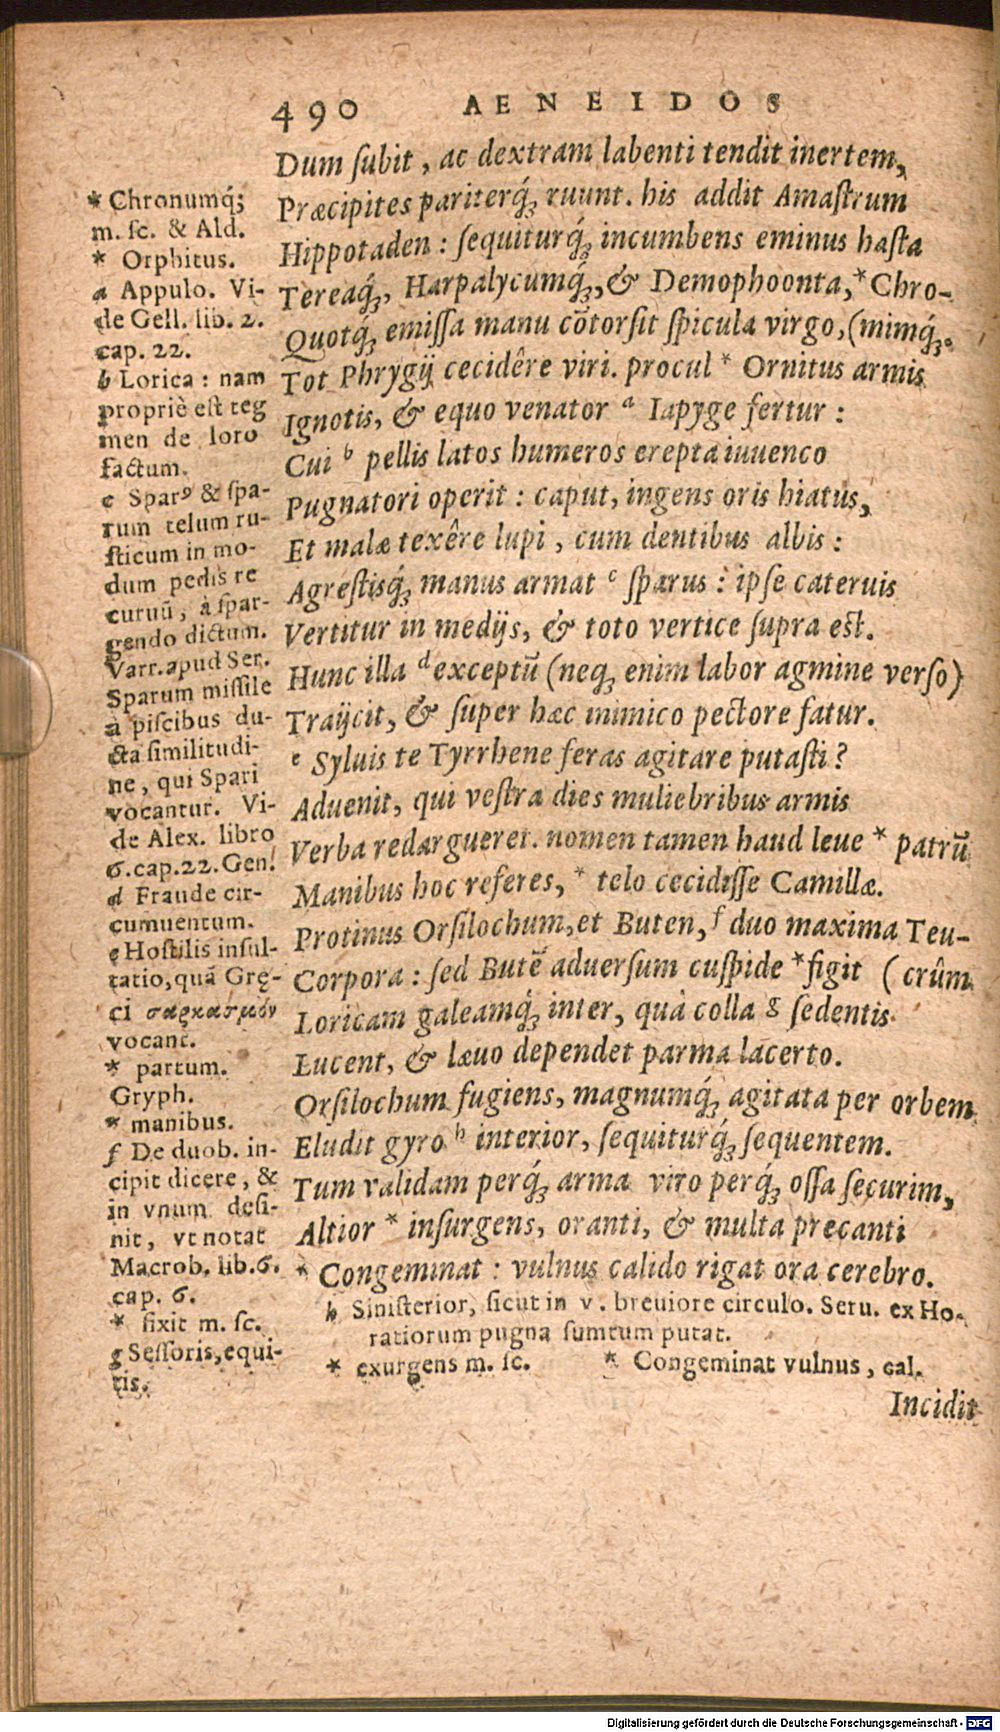 490 AENEIDOS
Dum ſubit, ac dextram labenti tendit inertem,
Præcipites pariterq́ꝫ ruunt. his addit Amaſtrum
Hippotaden: ſequiturq́ꝫ incumbens eminus haſta
Tereaq́ꝫ, Harpalycumq́ꝫ, & Demophoonta, *Chro-
Quotq́ꝫ emiſſa manu cõtorſit ſpicula virgo, (mimq́ꝫ.
Tot Phrygij cecidêre viri. procul * Ornitus armis
Ignotis, & equo venator a Iapyge fertur:
Cui b pellis latos humeros erepta iuuenco
Pugnatori operit: caput, ingens oris hiatus,
Et malæ texêre lupi, cum dentibus albis:
Agreſtisq́ꝫ manus armat c ſparus: ipſe cateruis
Vertitur in medijs, & toto vertice ſupra eſt.
Hunc illa d exceptũ (neqꝫ enim labor agmine verſo)
Traijcit, & ſuper hæc inimico pectore fatur.
e Syluis te Tyrrhene feras agitare putaſti?
Aduenit, qui veſtra dies muliebribus armis
Verba redargueret. nomen tamen haud leue * patrũ
Manibus hoc referes, * telo cecidiſſe Camillæ.
Protinus Orſilochum, et Buten, f duo maxima Teu-
Corpora: ſed Butẽ aduerſum cuſpide *figit (crûm
Loricam galeamq́ꝫ inter, quà colla g ſedentis
Lucent, & læuo dependet parma lacerto.
Orſilochum fugiens, magnumq́ꝫ agitata per orbem
Eludit gyro h interior, ſequiturq́ꝫ ſequentem.
Tum validam perq́ꝫ arma viro perq́ꝫ oſſa ſecurim,
Altior * inſurgens, oranti, & multa precanti
* Congeminat: vulnus calido rigat ora cerebro.
* Chronumq́;
m. ſc. & Ald.
* Orphitus.
a Appulo. Vi-
de Gell. lib. 2.
cap. 22.
b Lorica: nam
propriè eſt teg
men de loro
factum.
c Sparꝰ & ſpa-
rum telum ru-
ſticum in mo-
dum pedis re
curuũ, à ſpar-
gendo dictum.
Varr. apud Ser.
Sparum miſſile
à piſcibus du-
cta ſimilitudi-
ne, qui Spari
vocantur. Vi-
de Alex. libro
6. cap. 22. Gen.
d Fraude cir-
cumuentum.
e Hoſtilis inſul-
tatio, quã Grę-
ci σαρκασμόν
vocant.
* partum.
Gryph.
* manibus.
f De duob. in-
cipit dicere, &
in vnum deſi-
nit, vt notat
Macrob. lib. 6.
cap. 6.
* fixit m. ſc.
g Seſſoris, equi-
tis.
h Siniſterior, ſicut in v. breuiore circulo. Seru. ex Ho-
ratiorum pugna ſumtum putat.
* exurgens m. ſc. * Congeminat vulnus, cal.
Incidit
Digitalisierung gefördert durch die Deutsche Forschungsgemeinschaft - DFG